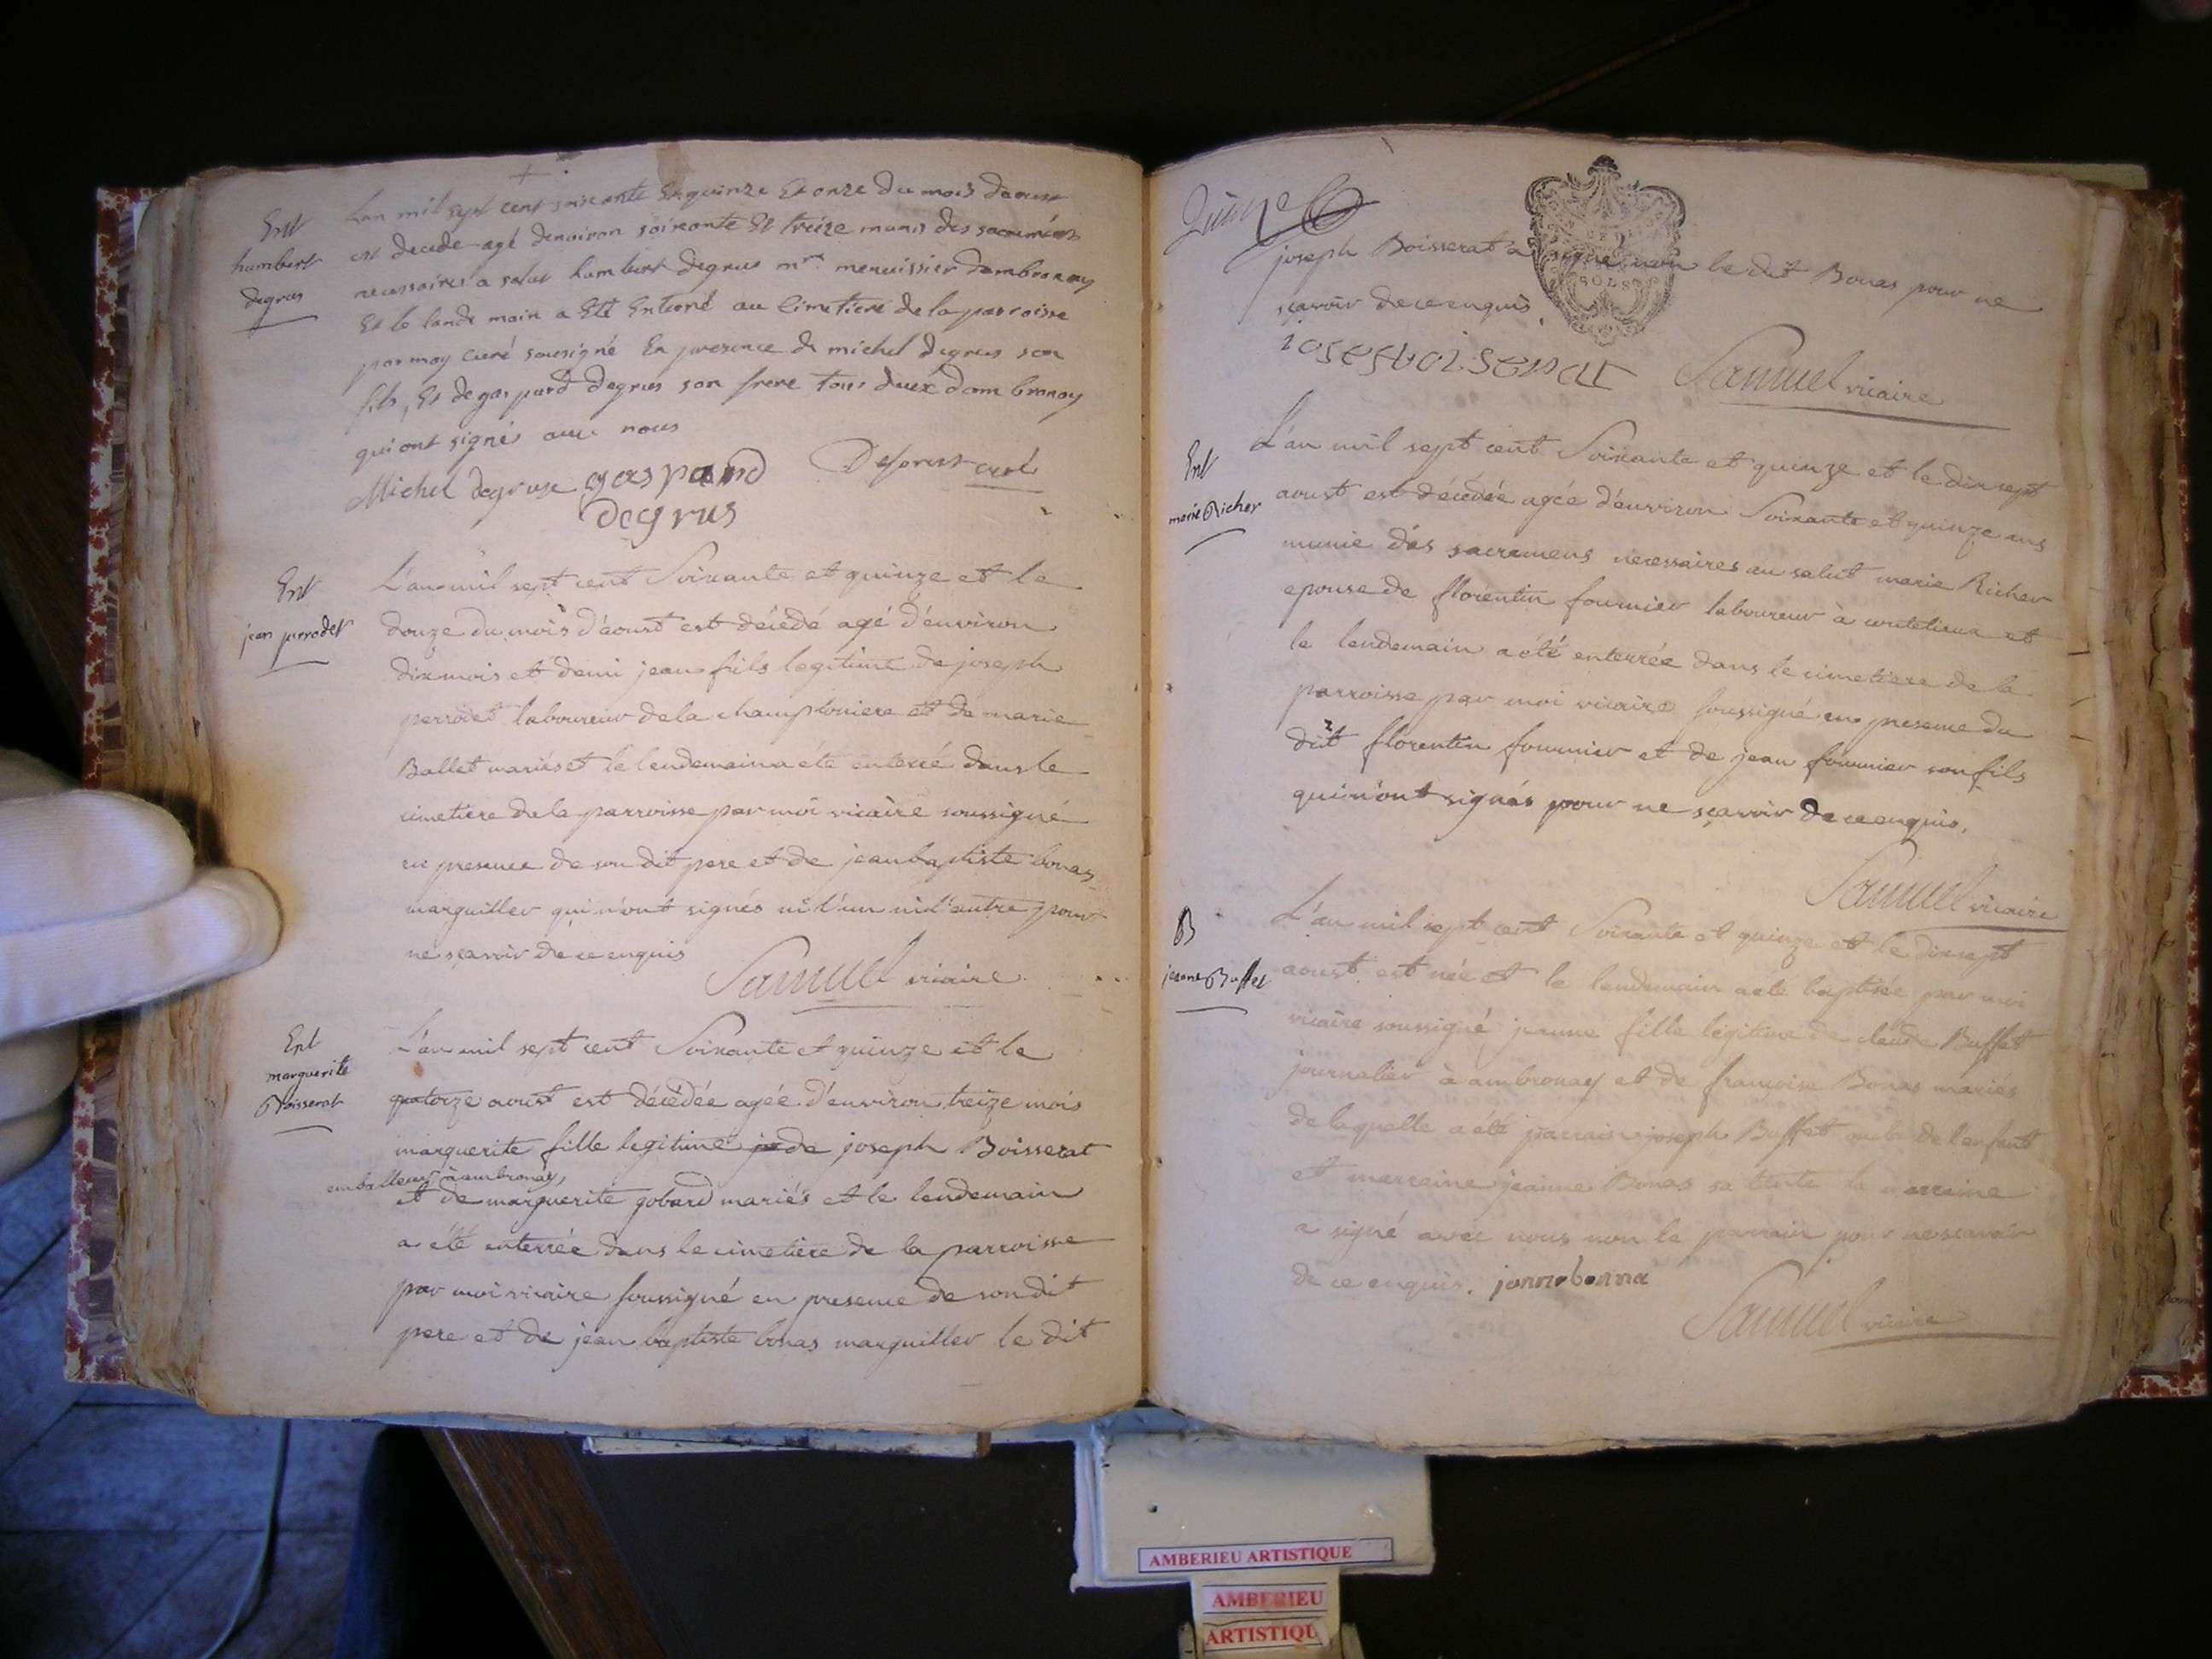 Ent
humbert
degrus
Lan mil sept cent soixante Et quinze Et onze du mois daoust
est decede agé denviron soixante Et treize muni des sacremens
necessaires a salut humbert degrus mre menuissier dambronay
Et le lande main a Eté Enterré au Cimetiere de la parroisse
par moy curé sousigné En presence de michel degrus son
fils, Et de gaspard degrus son frere tous deux dambronay
qui ont signés avec nous
Michel degruse gaspard
degrus
curé
Ent
jean perrodet
L'an mil sept cent Soixante et quinze et le
douze du mois d'aoust est décédé agé d'environ
dix mois et demi jean fils legitime de joseph
perrodet laboureur de la championiere et de marie
Ballet mariés et le lendemain a été enterré dans le
cimetiere de la parroisse par moi vicaire soussigné
en presence de son dit pere et de jean baptiste bonas
marguiller qui n'ont signés ni l'un ni l'autre pour
ne sçavoir de ce enquis
Samuel vicaire
Ent
marguerite
Boisserat
L'an mil sept cent Soixante et quinze et le
quatorze aoust est décédée agée d'environ treize mois
marguerite fille legitime de joseph Boisserat
emballeur à ambronay,
et de marguerite gobard mariés et le lendemain
a été enterrée dans le cimetiere de la parroisse
par moi vicaire soussigné en presence de son dit
pere et de jean baptiste bonas marguiller le dit
Quinze
joseph Boisserat a signé non le dit Bonas pour ne
sçavoir de ce enquis.
SOLS
Samuel vicaire
Ent
marie Richer
L'an mil sept cent Soixante et quinze et le dix sept
aoust est décédée agée d'environ Soixante et quinze ans
munie des sacremens necessaires au salut marie Richer
epouse de florentin fournier laboureur à et
le lendemain a été enterrée dans le cimetiere de la
parroisse par moi vicaire soussigné en presence du
dit florentin fournier et de jean fournier son fils
qui n'ont signés pour ne sçavoir de ce enquis.
Samuel vicaire
B
jeanne Buffet
L'an mil sept cent Soixante et quinze et le dix sept
aoust est née et le lendemain a été baptisée par moi
vicaire soussigné jeanne fille legitime de claude Buffet
journalier à ambronay et de francoise Bonas mariés
de laquelle a été parrain joseph Buffet oncle de l'enfant
et marraine jeanne Bonas sa tante la marraine
a signé avec nous non le parrain pour ne sçavoir
de ce enquis. janne bonna
Samuel vicaire
AMBERIEU ARTISTIQUE
AMBERIEU
ARTISTIQU